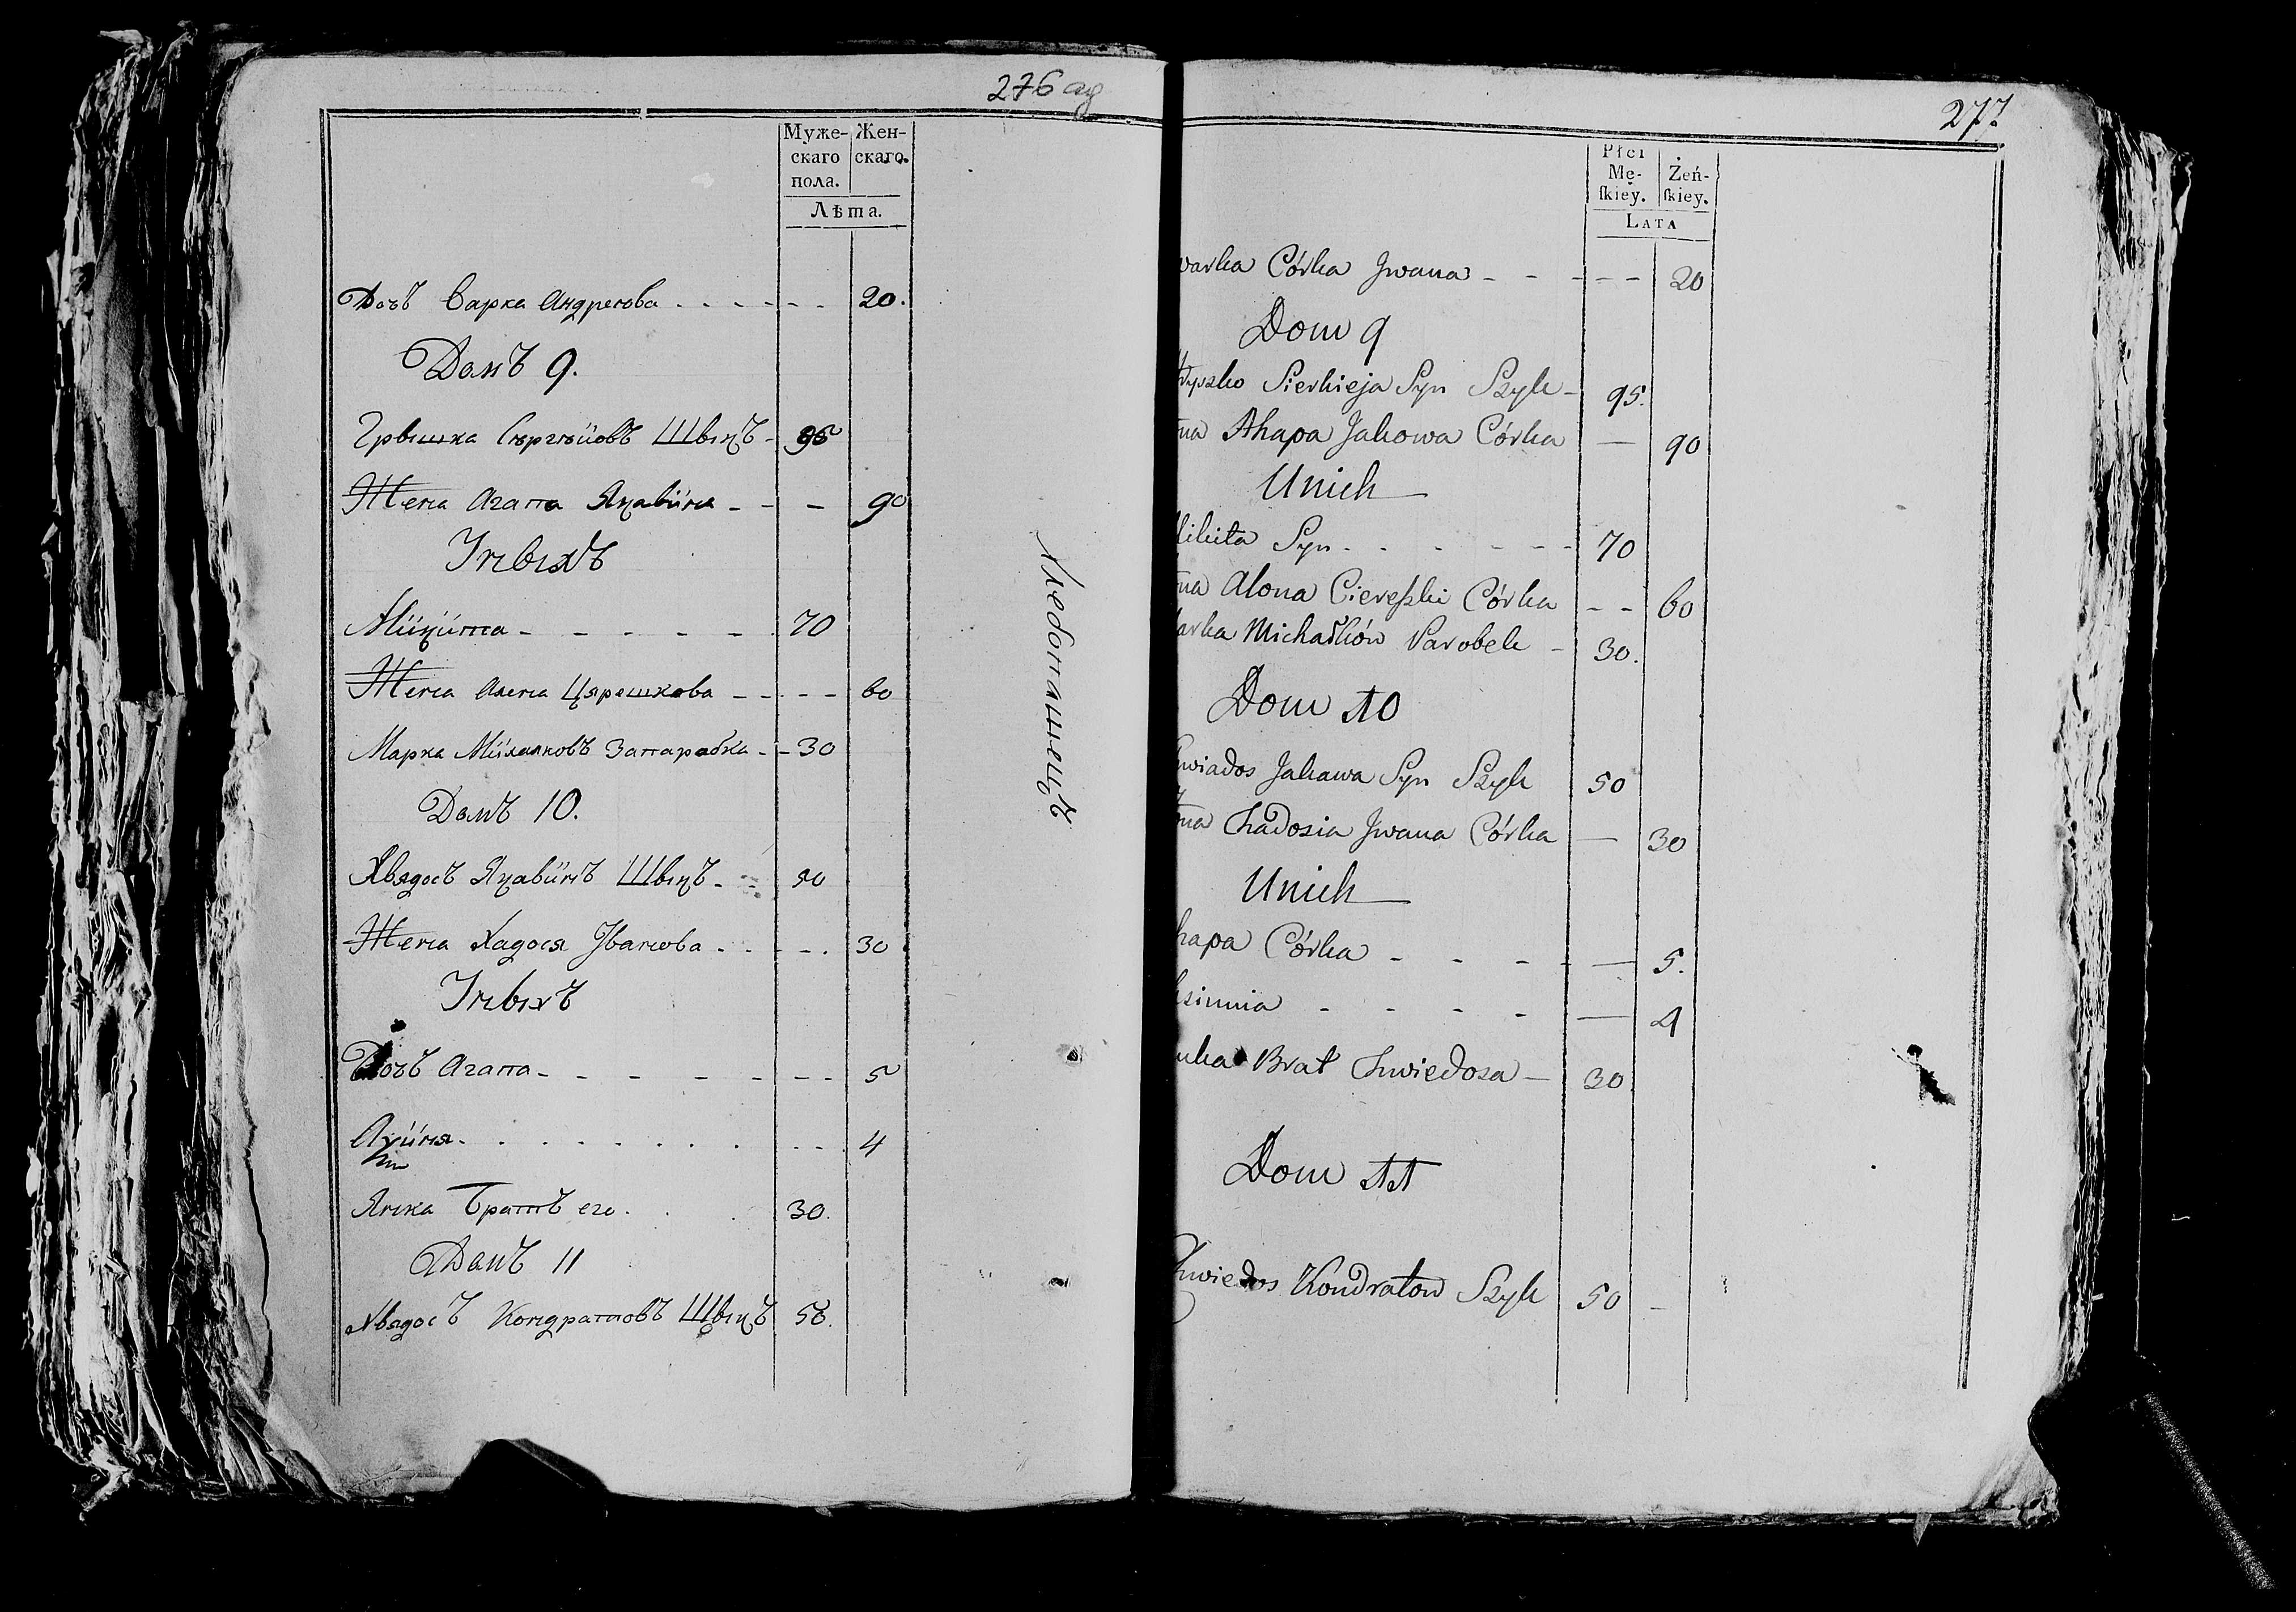 276 ад
Муже- Жен-
скаго скаго.
пола.
Лѣта.
Дочь Варка Андреюва 20.
Домъ 9.
Грышка Сѣргѣйовъ Шыкъ 95
Жена Агапа Якавіна 90
У ныхъ
Мікита 70
Жена Алена Цярешкова 60
Марка Міхалковъ Запарабка 30
Домъ 10.
Хвядосъ Якавінъ Шыкъ 50
Жена Хадося Иванюва 30
У ныхъ
Дочь Агапа 5
4
Янка Братъ его 30.
Домъ 11
Хвядосъ Кондратювъ Шыкъ 50.
277
Płci
Mę- Żeń-
ſkiey. ſkiey.
Lata
warka Córka Jwana 20
Dom 9
ryszko Sierkieja Syn Szyk 95.
na Ahapa Jakowa Córka 90
U nich
ikita Syn 70
na Alona Ciereſzki Córka 60
arka Michałków Parobek 30.
Dom 10
wiados Jakawa Syn Szyk 50
na Chadosia Jwana Córka 30
U nich
hapa Córka 5.
ksimia 4
nka Brat Chwiedosa 30
Dom 11
hwiedos Kondratow Szyk 50